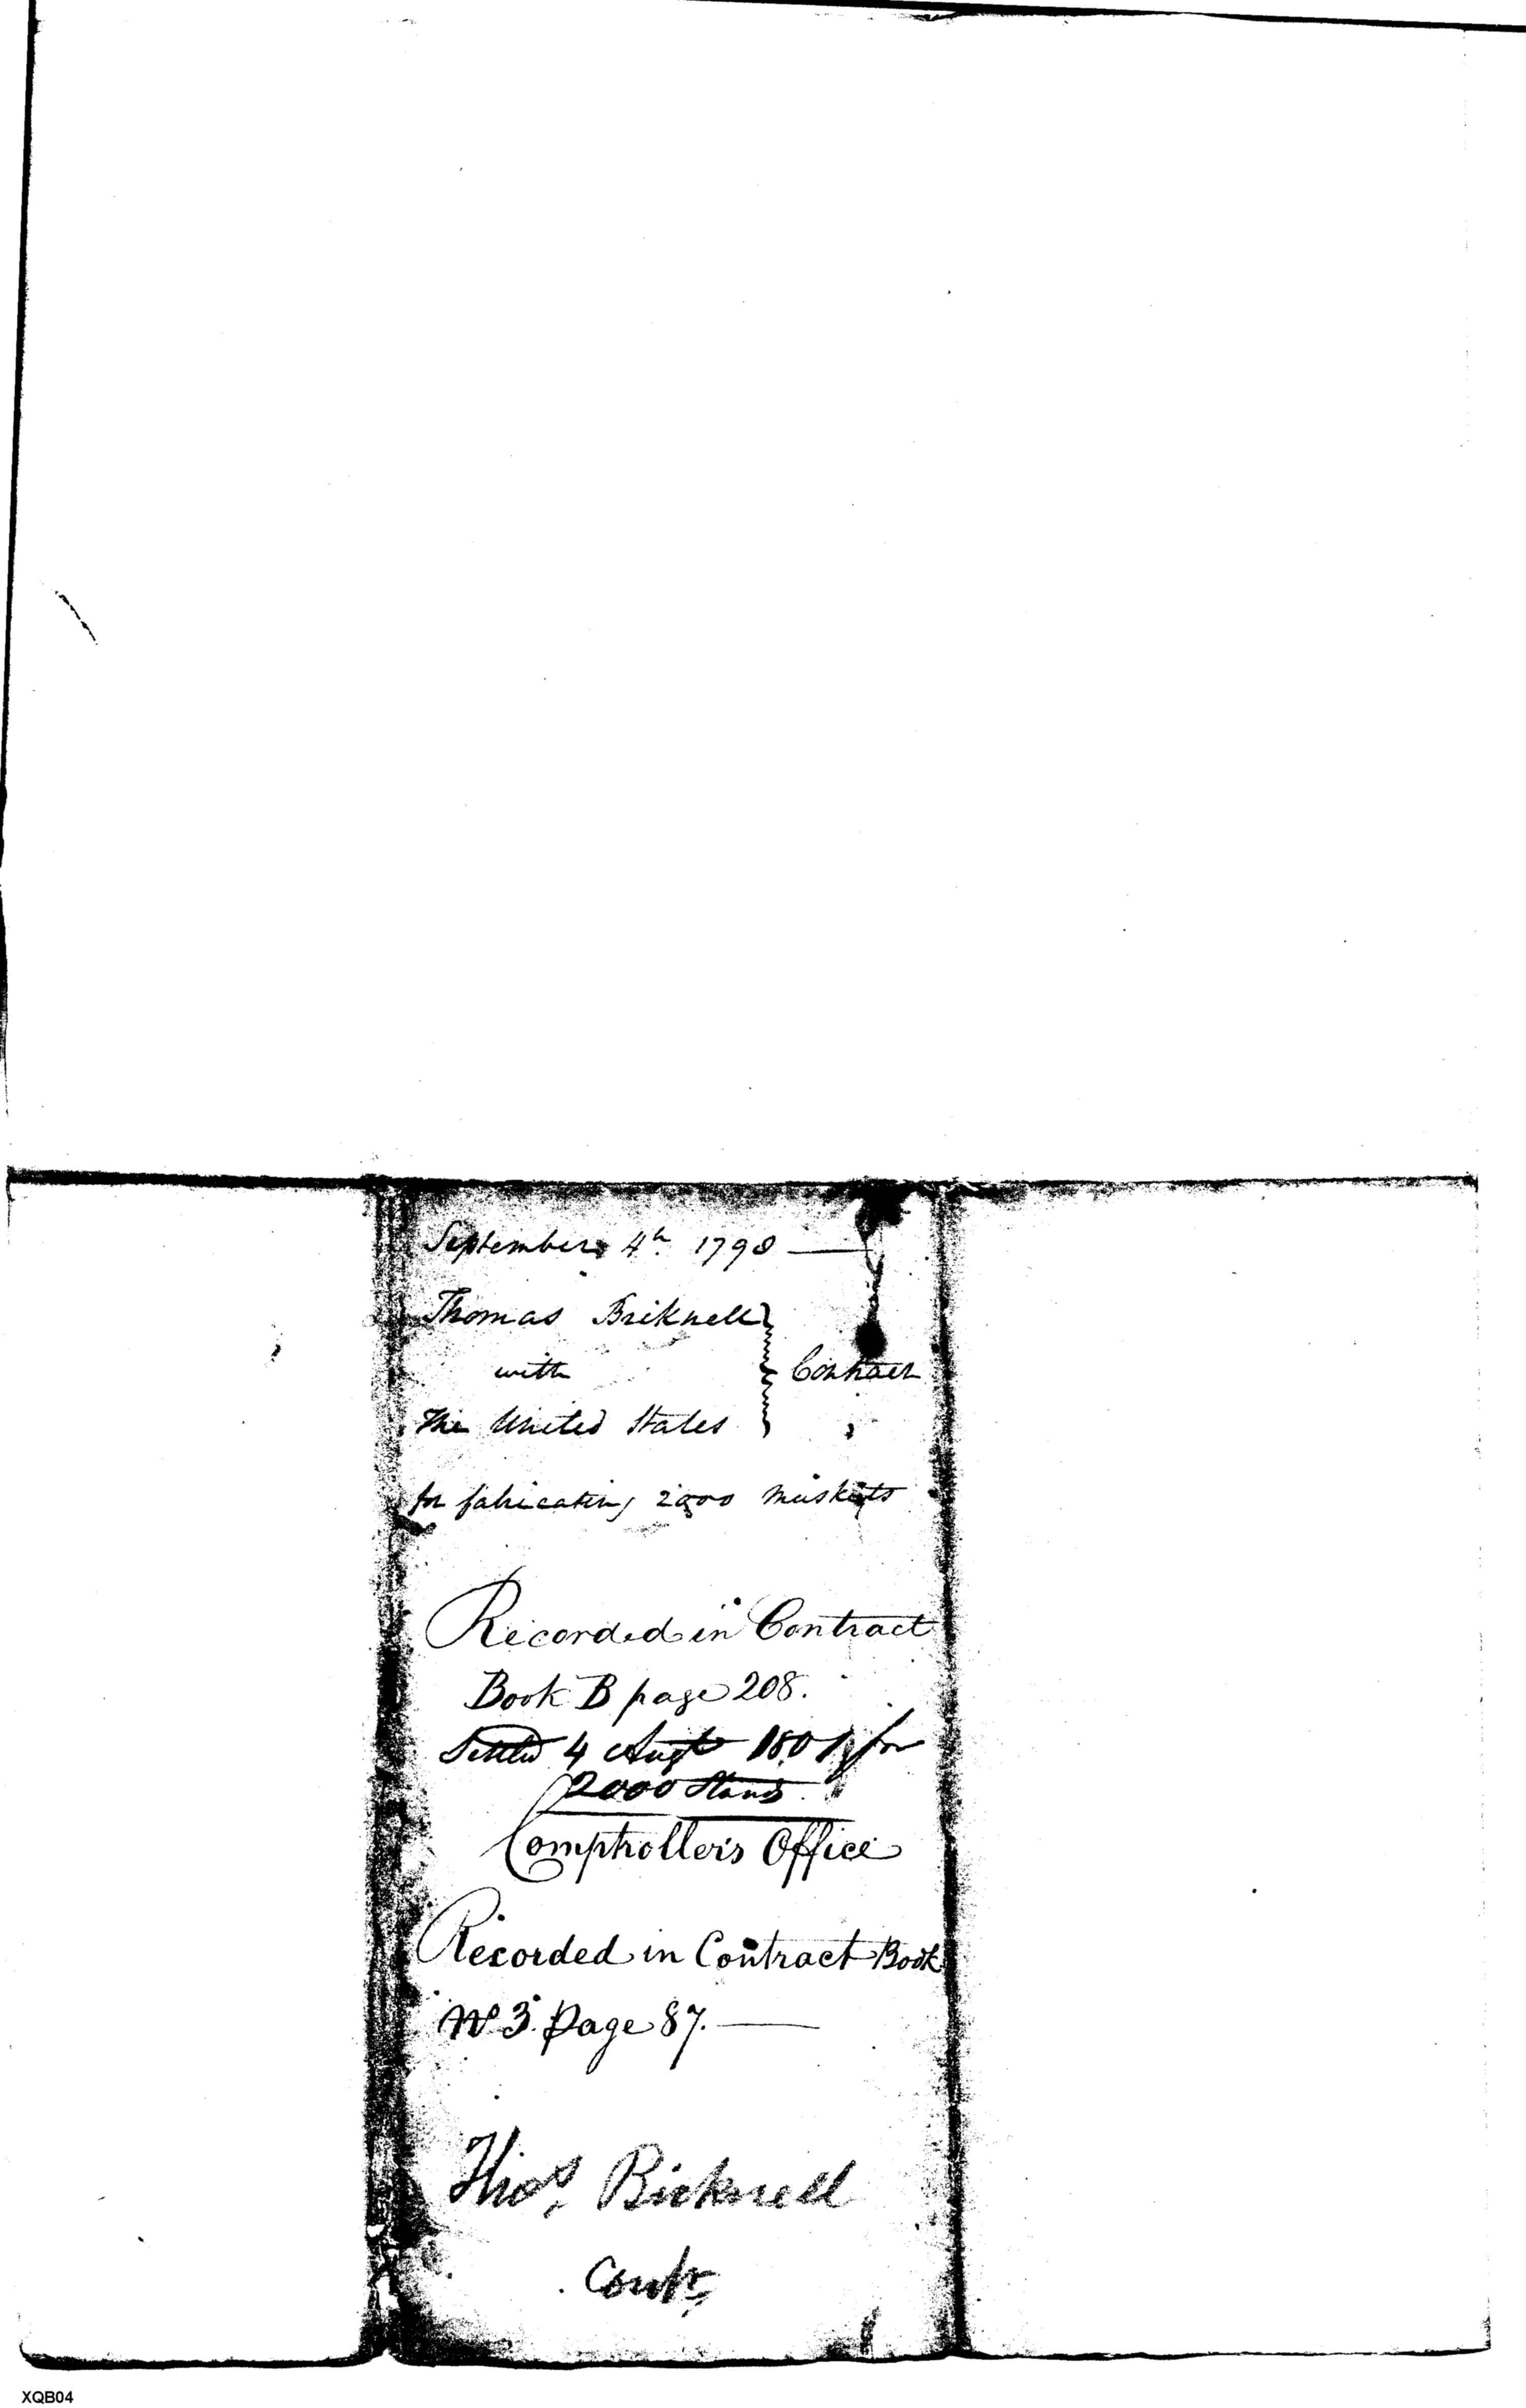 September 4th 1798
Thomas Bricknell
with
Contract
The United States
for fabricating 2000 muskets
Recorded in Contract
Book B page 208.
Settled 4 Augt 1801 for
2000 Stands.
Comptroller's Office
Recorded in Contract Book
No 3. page 87.
Thos. Bicknell
Contr.
XQB04